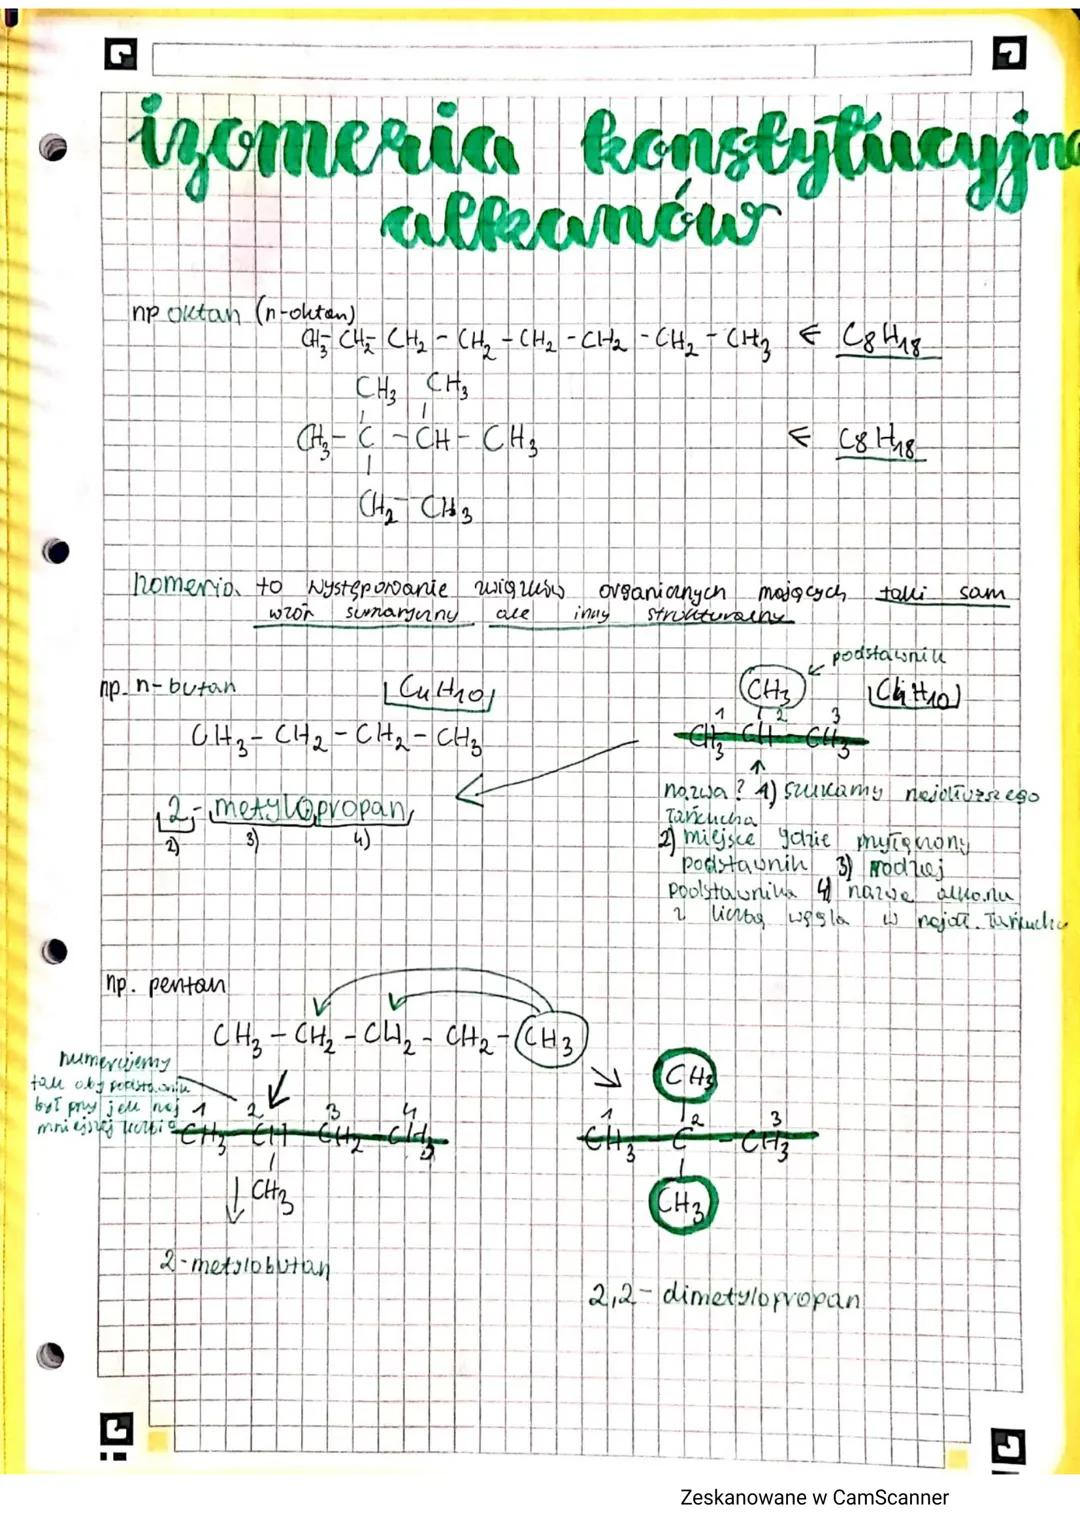 izomeria konstytucyjna
alkanów
np oktan (n-oktan)
CH3-CH2 CH2-CH2-CH2-CH2-CH2-CH3 ← C8H18
CH3 CH3
CH3-C-CH-CH3 ← C8H18
CH2-CH3
Izomeria to występowanie związków organicznych mających taki sam
wzór sumaryczny ale inny strukturalny
podstawnik
np. n-butan C4H10 CH3 C4H10
1 2 3
CH3-CH2-CH2-CH3 CH3-CH-CH3
2-metylopropan
2) 3) 4)
nazwa? 1) szukamy najdłuższego
łańcucha
2) miejsce gdzie przyłączony
podstawnik 3) rodzaj
podstawnika 4) nazwa alkanu
z liczbą węgla w najdł. łańcuchu
np. pentan
CH3-CH2-CH2-CH2-CH3
numerujemy
tak aby podstawnik
był przy jak naj
mniejszej liczbie
1 2 3 4
CH3-CH-CH2-CH3
CH3
2-metylobutan
CH3
1 2 3
CH3-C-CH3
CH3
2,2-dimetylopropan
Zeskanowane w CamScanner